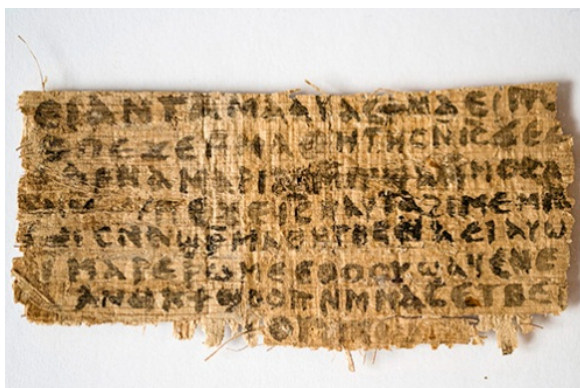 ⲉⲓ ⲁⲛ ⲧⲁⲙⲁⲁⲩ ⲁⲥϯ ⲛⲁⲉⲓ ⲡⲱ
ⲡⲉϫⲉ ⲙⲙⲁⲑⲏⲧⲏⲥ ⲛⲓ̅ⲥ̅ ϫⲉ ⲥ
ⲁⲣⲛⲁ ⲙⲁⲣⲓⲁⲙ
ⲡⲉϫⲉ ⲓ̅ⲥ̅ ⲛⲁⲩ ⲧⲁϩⲓⲙⲉ ⲙⲛ
ⲙⲁⲑⲏⲧⲏⲥ ⲛⲁⲉⲓ ⲁⲩⲱ
ⲓ ⲙⲁⲣⲉⲣⲱⲙⲉ ⲉⲑⲟⲟⲩ ϣⲁϥⲉ ⲛⲉ
ⲁⲛⲟⲕ ϯϣⲟⲟⲡ ⲛⲙⲙⲁⲥ ⲉⲧⲃⲉ